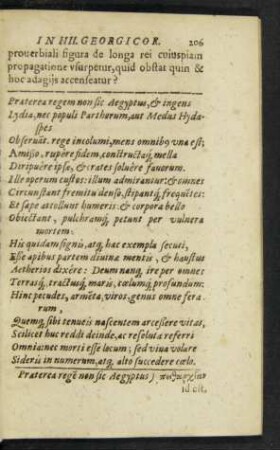 IN HII. GEORGICOR. 206
prouerbiali figura de longa rei cuiuspiam
propagatione vsurpetur, quid obstat quin &
hoc adagijs accenseatur?
Praeterea regem non sic Aegyptus, & ingens
Lydia, nec populi Parthorum, aut Medus Hydaspes
Obseruāt. rege incolumi, mens omnibꝰ vna est;
Amisso, rupêre fidem, constructaq́; mella
Diripuêre ipse, & crates soluêre fauorum.
Ille operum custos: illum admirantur: & omnes
Circunstant fremitu denso, stipantq́; frequētes:
Et saepe attollunt humeris: & corpora bello
Obiectant, pulchramq́; petunt per vulnera
mortem:
His quidam signis, atq́; haec exempla secuti,
Esse apibus partem diuinae mentis, & haustus
Aethereos dixêre: Deum nanq́; ire per omnes
Terrasq́; tractusq́; maris, caelumq́; profundum:
Hinc pecudes, armēta, viros, genus omne ferarum,
Quemq́; sibi tenueis nascentem arcessere vitas,
Scilicet huc reddi deinde, ac resoluta referri
Omnia: nec morti esse locum; sed viua volare
Sideris in numerum, atq́; alto succedere caelo.
Praeterea regē non sic Aegyptus)
id est,